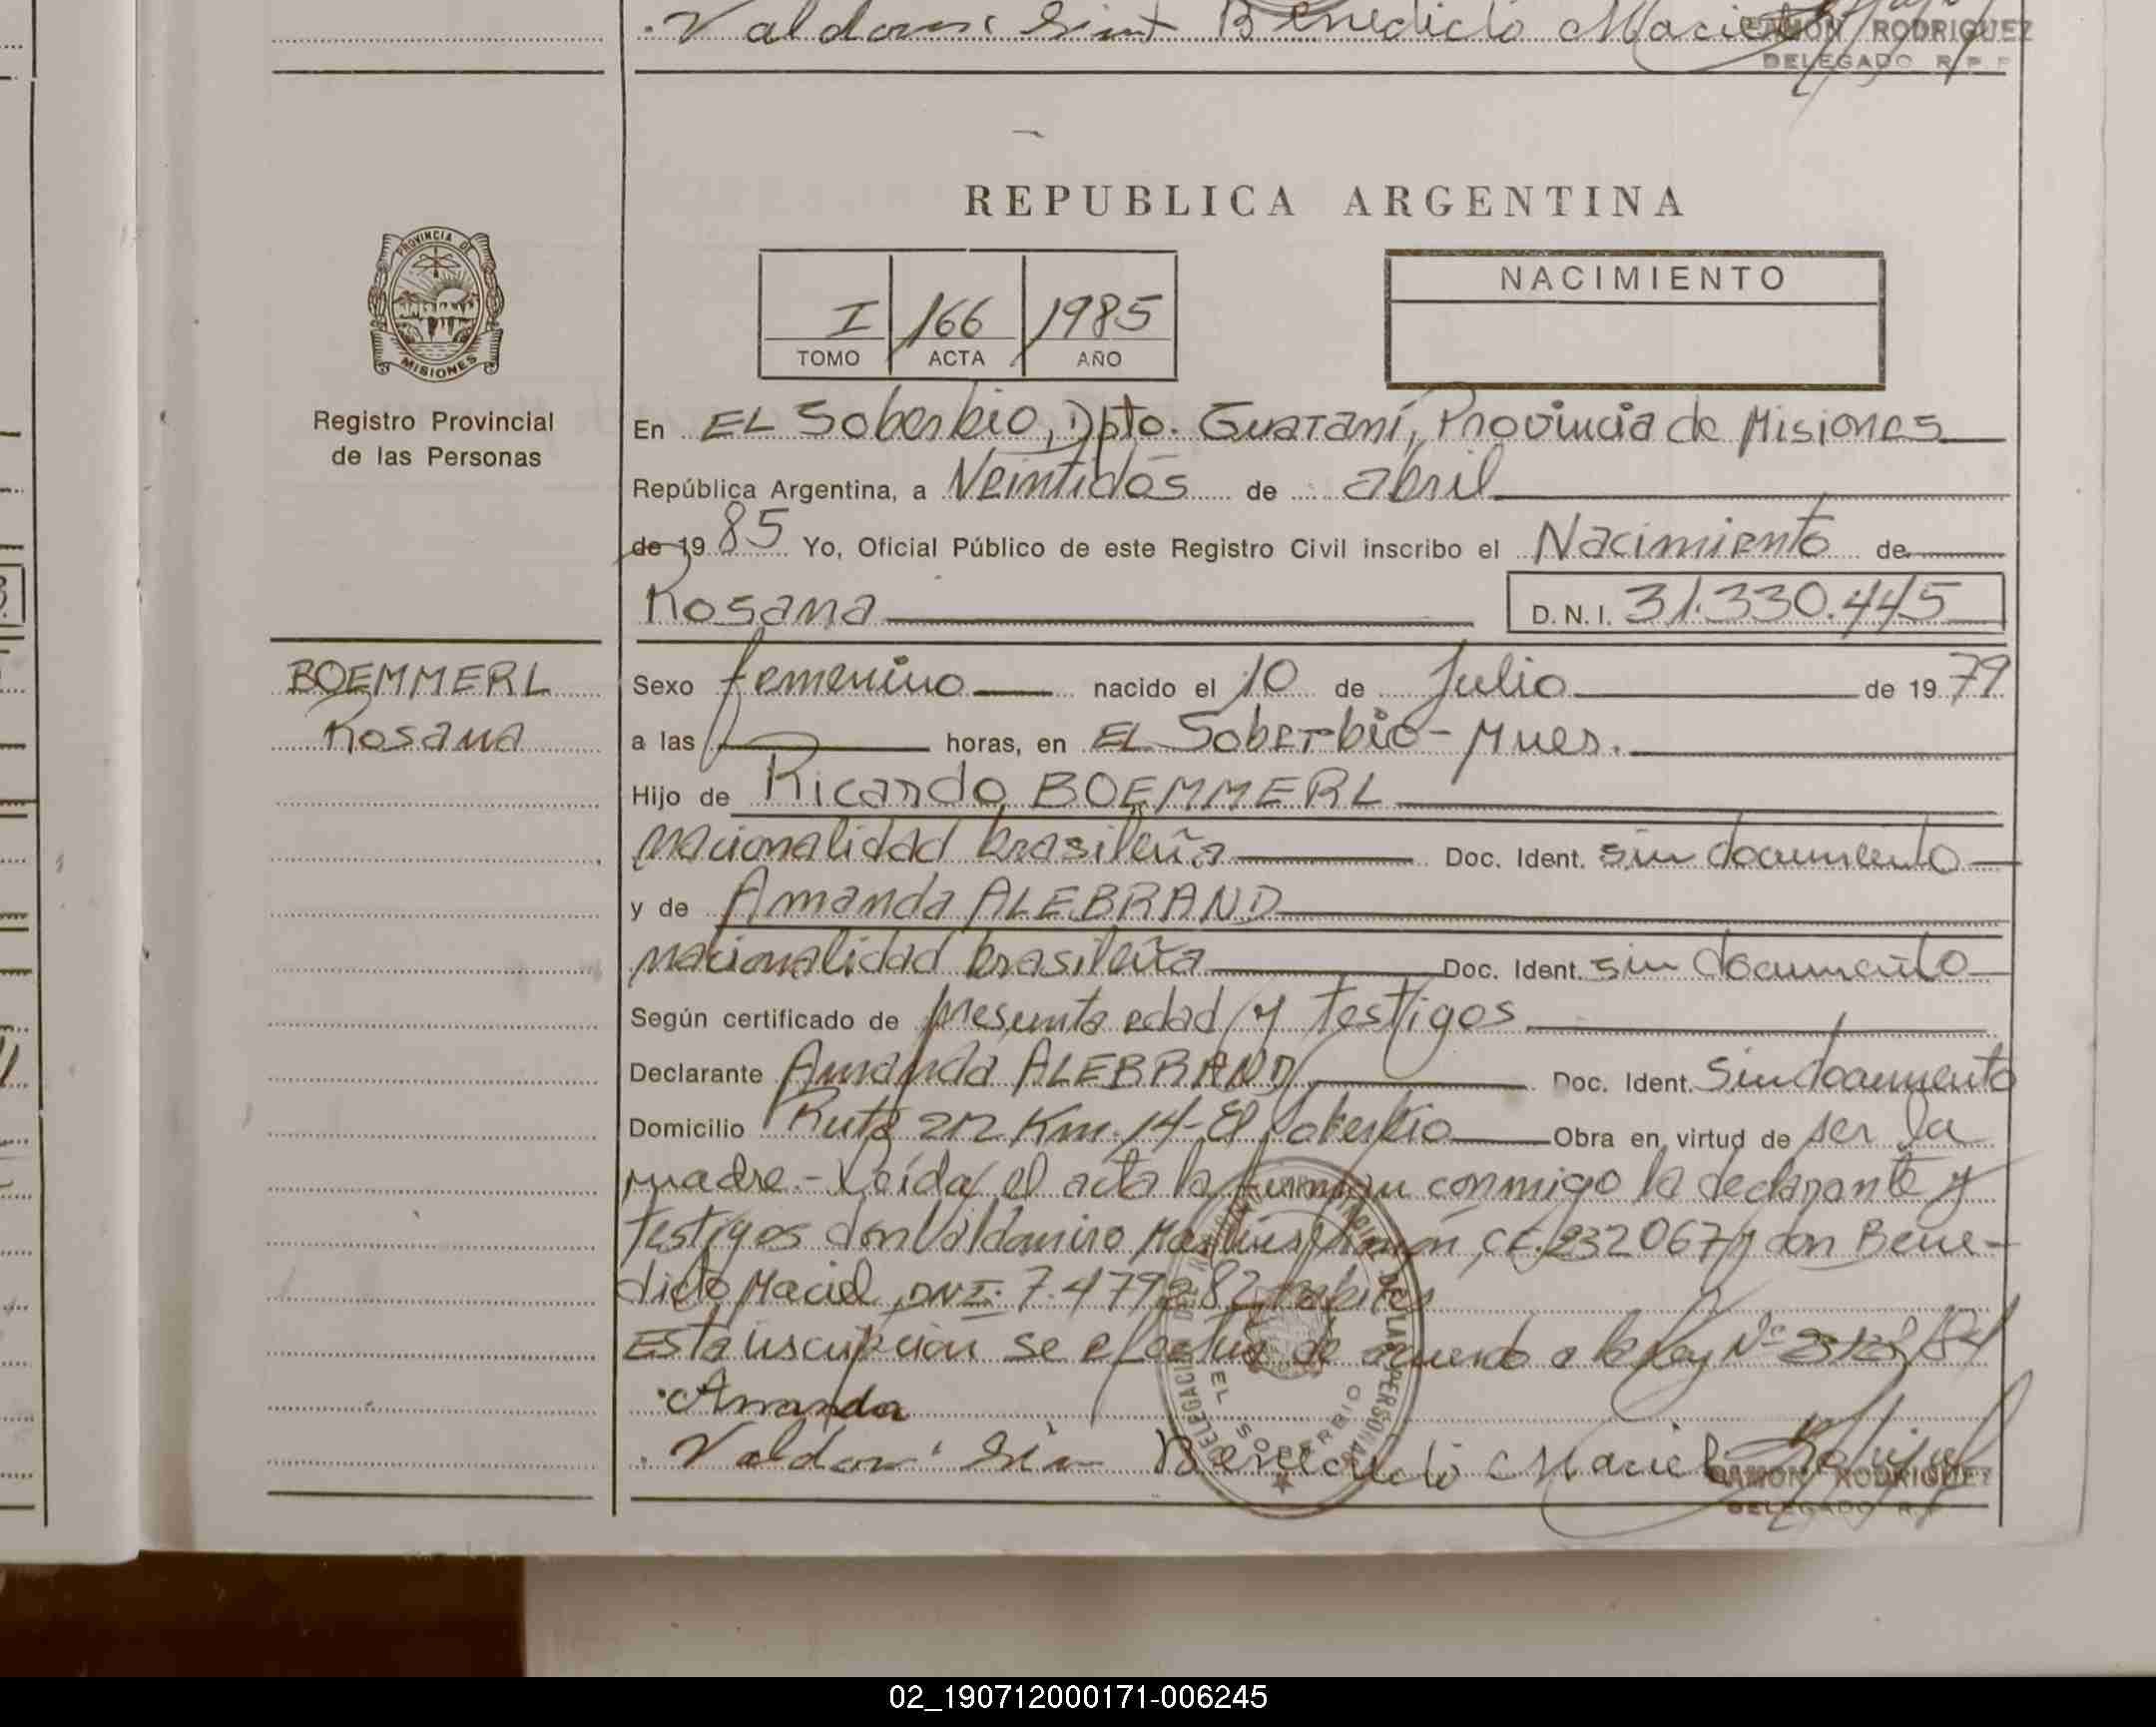 Benedicto Maciel
RAMON RODRIGUEZ
DELEGADO R P P
REPUBLICA ARGENTINA
PROVINCIA DE
MISIONES
Registro Provincial
de las Personas
I 166 1985
TOMO ACTA AÑO
NACIMIENTO
En EL Soberbio, Dpto. Guaraní, Provincia de Misiones
República Argentina, a Veintidós de abril
de 19 85 Yo, Oficial Público de este Registro Civil inscribo el Nacimiento de
Rosana D.N.I. 31.330.445
BOEMMERL
Rosana
Sexo femenino nacido el 10 de Julio de 19 79
a las horas, en EL Soberbio - Mnes.
Hijo de Ricardo BOEMMERL
nacionalidad brasileña Doc. Ident. sin documento
y de Amanda ALEBRAND
nacionalidad brasileña Doc. Ident. sin documento
Según certificado de presunta edad y testigos
Declarante Amanda ALEBRAND Doc. Ident. Sin documento
Domicilio Ruta 212 Km. 14 - El Soberbio Obra en virtud de ser la
madre. - Leída el acta la firman conmigo la declarante y
testigos don Valdomiro y don Bene-
dicto Maciel, DNI. hábiles
Esta inscripción se efectúa de acuerdo a la ley Nº
Amanda
Benedicto Maciel
EL SOBERBIO
RAMON RODRIGUEZ
DELEGADO R.
02_190712000171-006245